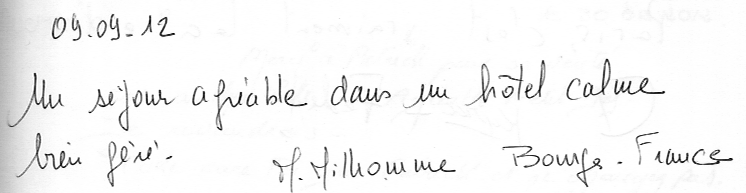 09.09.12
Un séjour agréable dans un hôtel calme
bien géré. M. Milhomme Bourges - France